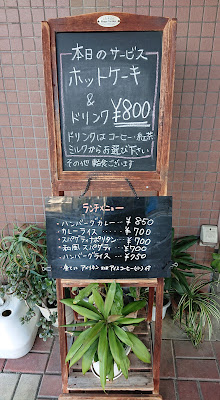 本日のサービス
ホットケーキ
&
ドリンク ¥800
ドリンクはコーヒー・紅茶
ミルクからお選び下さい
その他 軽食ございます
ランチメニュー
・ハンバーグカレー… ¥850
・カレーライス … ¥700
・スパゲティナポリタン… ¥700
・和風スパゲティ … ¥700
・ハンバーグライス …
アイスコーヒー付